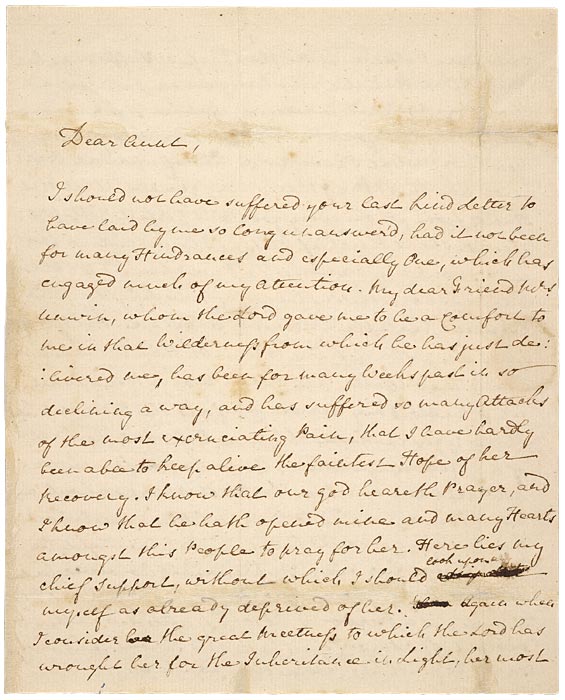 Dear Aunt,
I should not have suffered your last kind Letter to
have laid by me so long unanswer'd, had it not been
for many Hindrances and especially One, which has
engaged much of my Attention. My dear Friend Mrs
Unwin, whom the Lord gave me to be a Comfort to
me in that Wilderness from which he has just de:
:livered me, has been for many Weeks past in so
declining a way, and has suffered so many Attacks
of the most excruciating Pain, that I have hardly
been able to keep alive the faintest Hope of her
Recovery. I know that our God heareth Prayer, and
I know that he hath opened mine and many Hearts
amongst this People to pray for her. Here lies my
look upon
chief Support, without which I should
myself as already deprived of her. Again when
I consider the great Meetness to which the Lord has
wrought her for the Inheritance in Light, her most